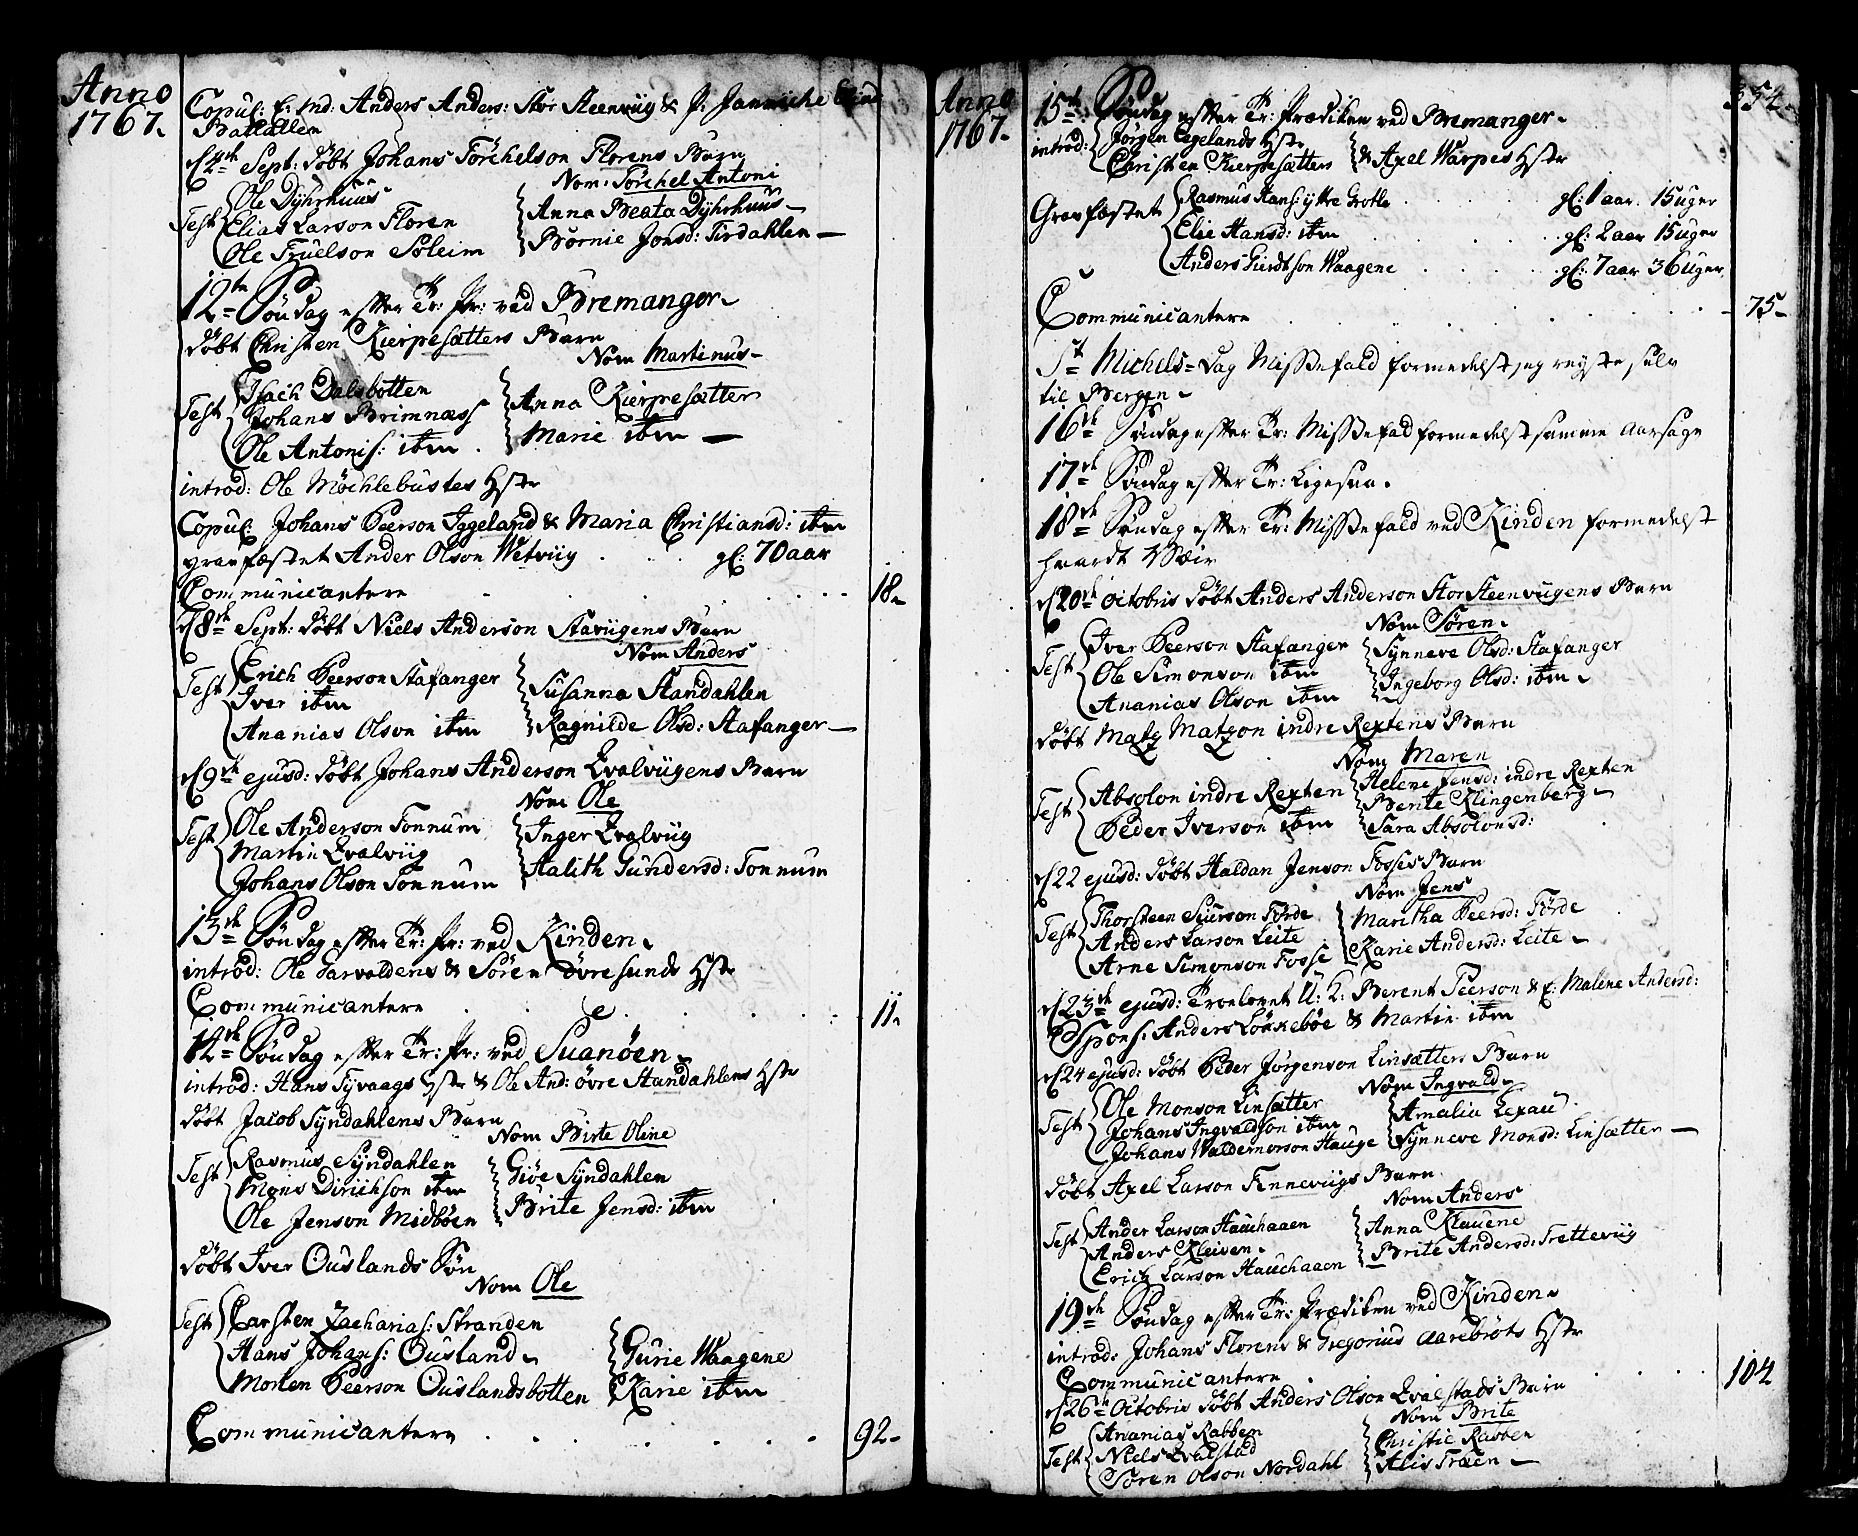 Anno
1767.
Copul: E: Md. Anders Anders: Stor Steenviig & P: Jannicke
Batlallen
d 2te Sept: döbt Johans Törchelson Florens Barn
Nom: Törchel Antoni
Test Ole Dÿhrhuus
Elias Larson Floren
Ole Truelson Soleim
Anna Beata Dÿhrhuus
Bornie Jonsd: Tirdahlen
12te Söndag effter Tr: Pr: ved Bremanger
döbt Christen Kierpesætters Barn
Nom Martinus
Test Isach Dalsbotten
Johans Brimnæss
Ole Antonis: ibm
Anna Kierpesætter
Marie ibm
introd: Ole Möchlebustes Hstr
Copul: Johans Peerson Iggeland & Maria Christiansd: ibm
gravfæstet Ander Olson Wetviig gl: 70 aar
Communicantere 18
d 8te Sept: döbt Niels Anderson Staviigens Barn
Nom Anders
Test Erich Peerson Stafanger
Iver ibm
Ananias Olson ibm
Susanna Standahlen
Ragnilde Olsd: Stafanger
d 9te ejusd: döbt Johans Anderson Qvalviigens Barn
Nom Ole
Test Ole Anderson Tonnum
Martin Qvalviig
Johans Olson Tonnum
Inger Qvalviig
Aalith Gundersd: Tonnum
13te Söndag effter Tr: Pr: ved Kinden
introd: Ole Sarvoldens & Sören Övresunds Hstr
Communicantere 11
14te Söndag effter Tr: Pr: ved Suanöen
introd: Hans Tyvaags Hstr & Ole And: övre Standahlens Hstr
döbt Jacob Syndahlens Barn
Nom Birte Oline
Test Rasmus Syndahlen
Mons Dirichson ibm
Ole Jenson Midböen
Giöe Syndahlen
Brite Jensd: ibm
döbt Iver Ouslands Sön
Nom Ole
Test Carsten Zacharias: Stranden
Hans Johans: Ousland
Morten Peerson Ouslandsbotten
Gurie Waagene
Karie ibm
Communicantere 92
Anno
1767
354
15te Söndag effter Tr: Prædiken ved Bremanger
introd: Jörgen Eegelands Hstr
Christen Kierpesætters & Axel Warpes Hstr
Gravfæstet Rasmus Hans: ytre Grotle gl: 1 aar 15 uger
Elie Hansd: ibm gl: 2 aar 15 uger
Anders Giertson Waagene gl: 7 aar 36 uger
Communicantere 75
St Michels Dag Missefald formedelst jeg reyste selv
til Bergen
16te Söndag effter Tr: Missefald formedelst samme Aarsage
17te Söndag effter Tr: Ligesaa.
18te Söndag effter Tr: Missefald ved Kinden formedelst
haardt Veir
d 20te Octobris döbt Anders Anderson StorSteenviigens Barn
Nom Sören
Test Iver Peerson Stafanger
Ole Simonson ibm
Ananias Olson ibm
Synneve Olsd: Stafanger
Ingeborg Olsd: ibm
döbt Matz Matzon indre Rextens Barn
Nom Maren
Test Absolon indre Rexten
Peder Iverson ibm
Helene Jensd: indre Rexten
Bente Klingenberg
Sara Absolonsd:
d 22 ejusd: döbt Haldan Jenson Fosses Barn
Nom Jens
Test Thorsteen Siurson Förde
Anders Larson Leite
Arne Simonson Fosse
Maritha Peersd: Förde
Karie Andersd: Leite
d 23te ejusd: Troelovet U: K: Berent Peerson & E: Malene Andersd:
Spons: Anders Lökkeböe & Martin ibm
d 24 ejusd: döbt Peder Jörgenson Linsætters Barn
Nom Ingvald
Test Ole Monson Linsætter
Johans Ingvaldson ibm
Johans Waldemorson Hauge
Amalia Lexau
Synneve Monsd: Linsætter
döbt Axel Larson Finneviigs Barn
Nom Anders
Test Ander Larson Hauchaaen
Anders Kleiven
Erich Larson Hauchaaen
Anna Klauene
Brite Andersd: Tretteviig
19te Söndag effter Tr: Prædiken ved Kinden
introd: Johans Florens & Gregorius Aarebröts Hstr
Communicantere 104
d 26te Octobris döbt Anders Olson Qvalstads Barn
Nom Brite
Test Ananias Rabben
Niels Qvalstad
Sören Olson Nordahl
Christie Rabben
Alis Træen